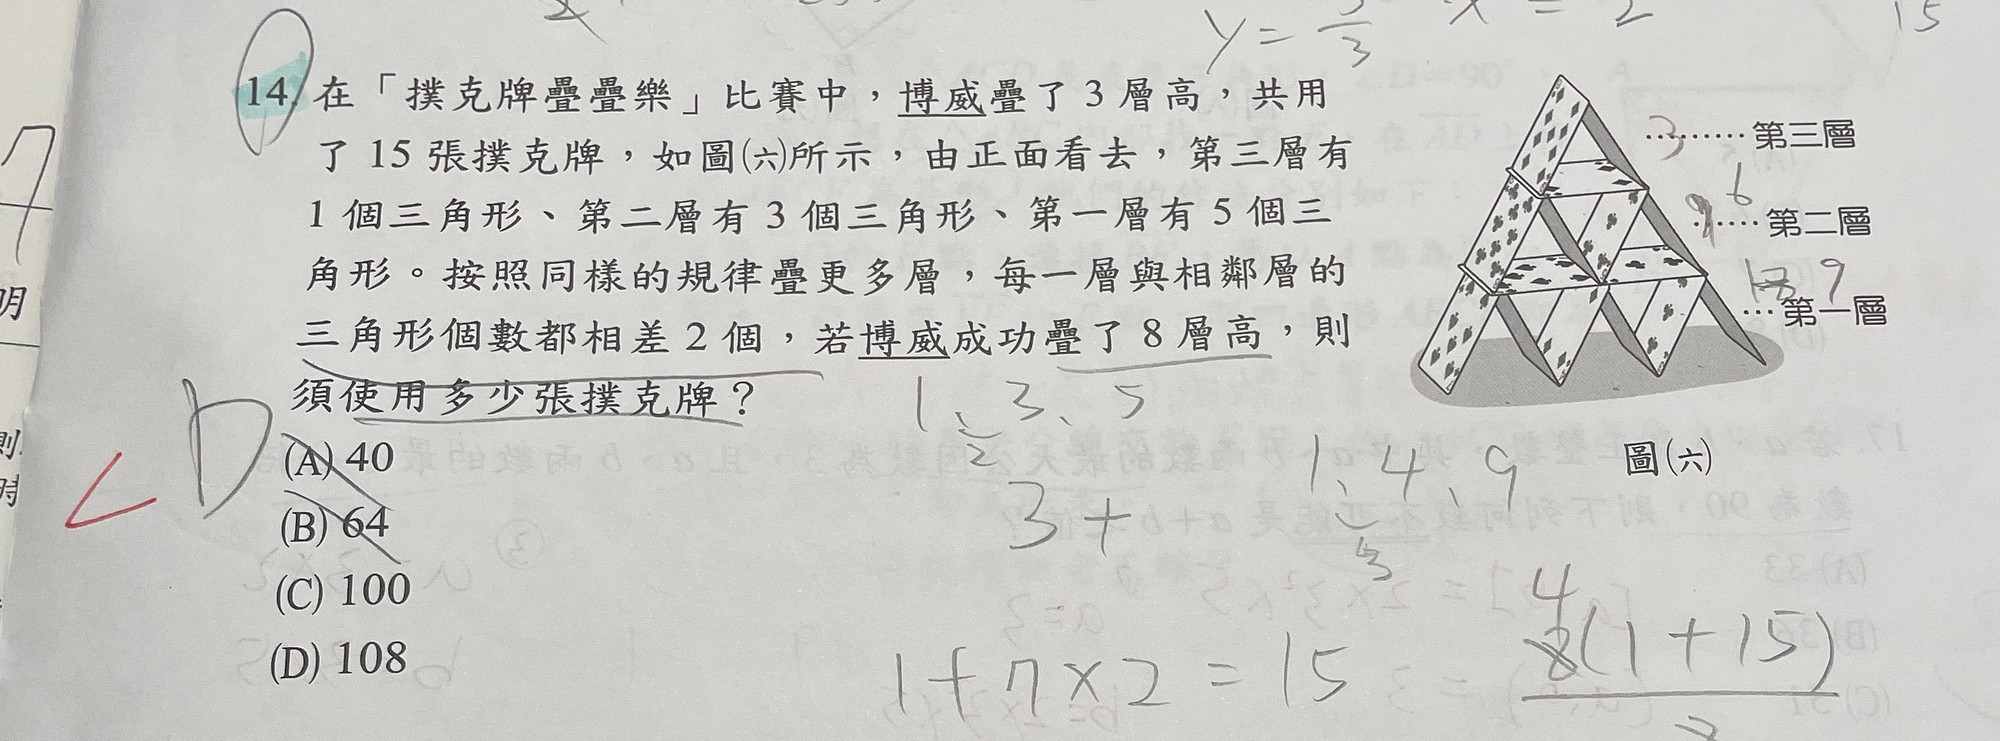 y = 3/3 x = 2
15
14. 在「撲克牌疊疊樂」比賽中，博威疊了 3 層高，共用
了 15 張撲克牌，如圖(六)所示，由正面看去，第三層有
1 個三角形、第二層有 3 個三角形、第一層有 5 個三
角形。按照同樣的規律疊更多層，每一層與相鄰層的
三角形個數都相差 2 個，若博威成功疊了 8 層高，則
須使用多少張撲克牌？
(A) 40
(B) 64
(C) 100
(D) 108
D
3 ………第三層
6
……第二層
9
…第一層
圖(六)
1、3、5
2
3+
1、4、9
3
1+7×2=15
4
8(1+15)
2
明
則
時